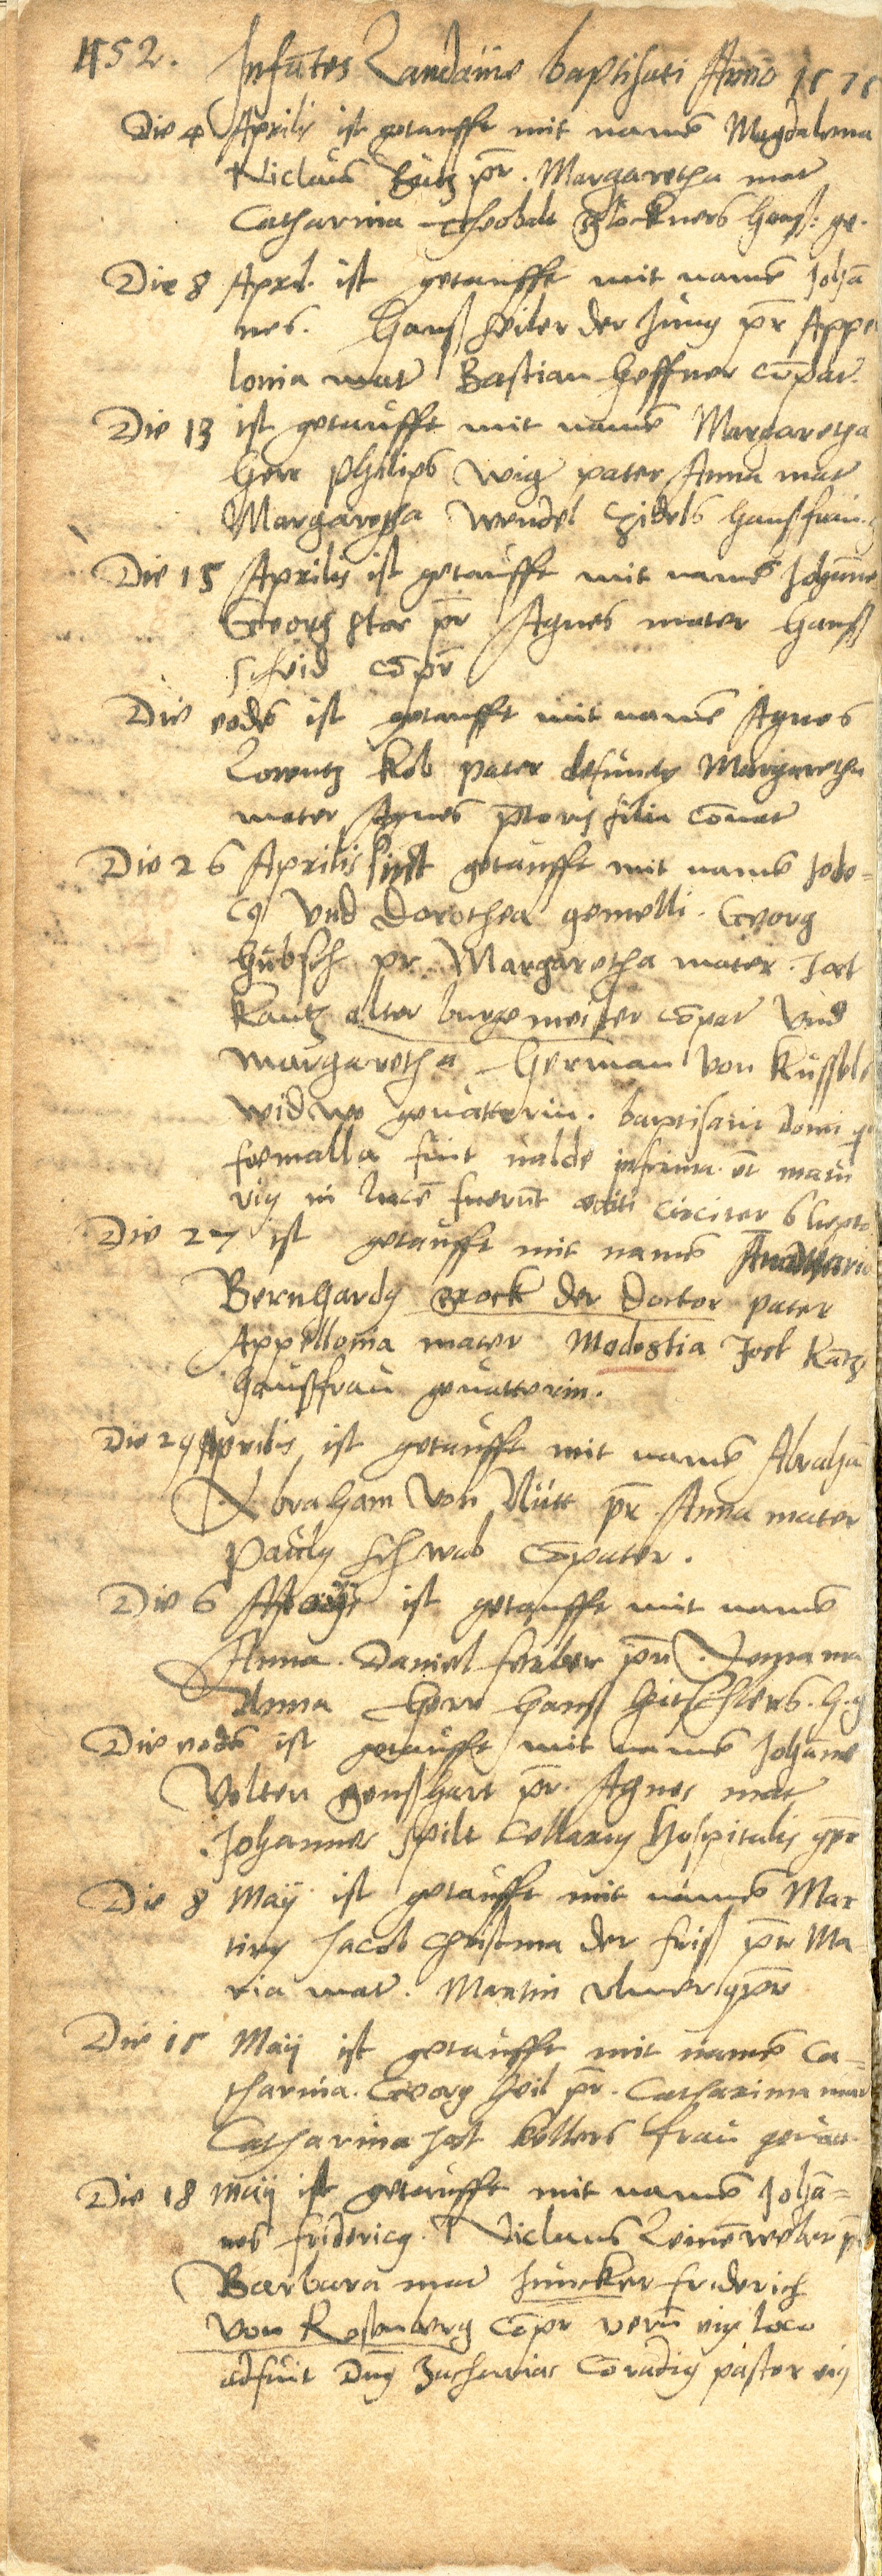 152. Infātes Landauie baptisati Anno 1575
Die 4 Aprilis ist getaufft mit namē Magdalena
Niclaus pr̄. Margaretha mat
Catharina Theobalt Glöckners hauß: ge.
Die 8 April. ist getaufft mit namē Johā
nes. Hanß Seiler der Jung pr̄ Appe
lonia mat Bastian Heffner cōpat.
Die 13 ist getaufft mit namē Margaretha
Herr Philips Wig pater Anna mat
Margaretha Wendel hausfrau.
Die 15 Aprilis ist getaufft mit namē Johāne
Georg pr̄ Agnes mater Hanß
cōpr̄
Die eodē ist getaufft mit namē Agnes
Lorentz Kob pater defunct9 Margaretha
mater Agnes filia cōmat
Die 26 Aprilis sint getaufft mit namē Jodo=
c9 und Dorothea gemelli. Georg
Hübsch pr. Margaretha mater. Jost
Kautz alter burgemeister cōpat und
Margaretha German von Küssels
widwe gevatterin. baptisavit domi
foemella fuit valde infirma et
in lucē fuerūt editi circiter 6
Die 27 ist getaufft mit namē
Bernhard9 der Doctor pater
Appellonia mater Modestia Jost Kātz
haussfrau gevatterin.
Die 29 Aprilis ist getaufft mit namē Abrahā
Abraham von Nütt pr̄. Anna mater
Paul9 Schwab cōpater.
Die 6 ist getaufft mit namē
Anna. Daniel Ferber pr̄.
Anna Herr Hanß Hütschlers. H. g
Die eodē ist getaufft mit namē Johāne
Velten Genßhart pr̄. Agnes mat
Johannes Spilt Cellari9 Hospitalis
Die 8 Maij ist getaufft mit namē Mar
tin9 Jacob Christman der pr̄ Ma
ria mat. Martin Ulmer
Die 15 Maij ist getaufft mit namē Ca=
tharina. Georg Heil pr̄. Catharina mat
Catharina Jost Kellers frau gevatt
Die 18 Maij ist getaufft mit namē Johā=
nes Frideric9. Niclaus Leinēweber p̄
Barbara mat Juncker Friderich
von Rosenberg cōpr̄ verū ei9 loco
adfuit Dn̄9 Zacharias Cōradi9 pastor ei9